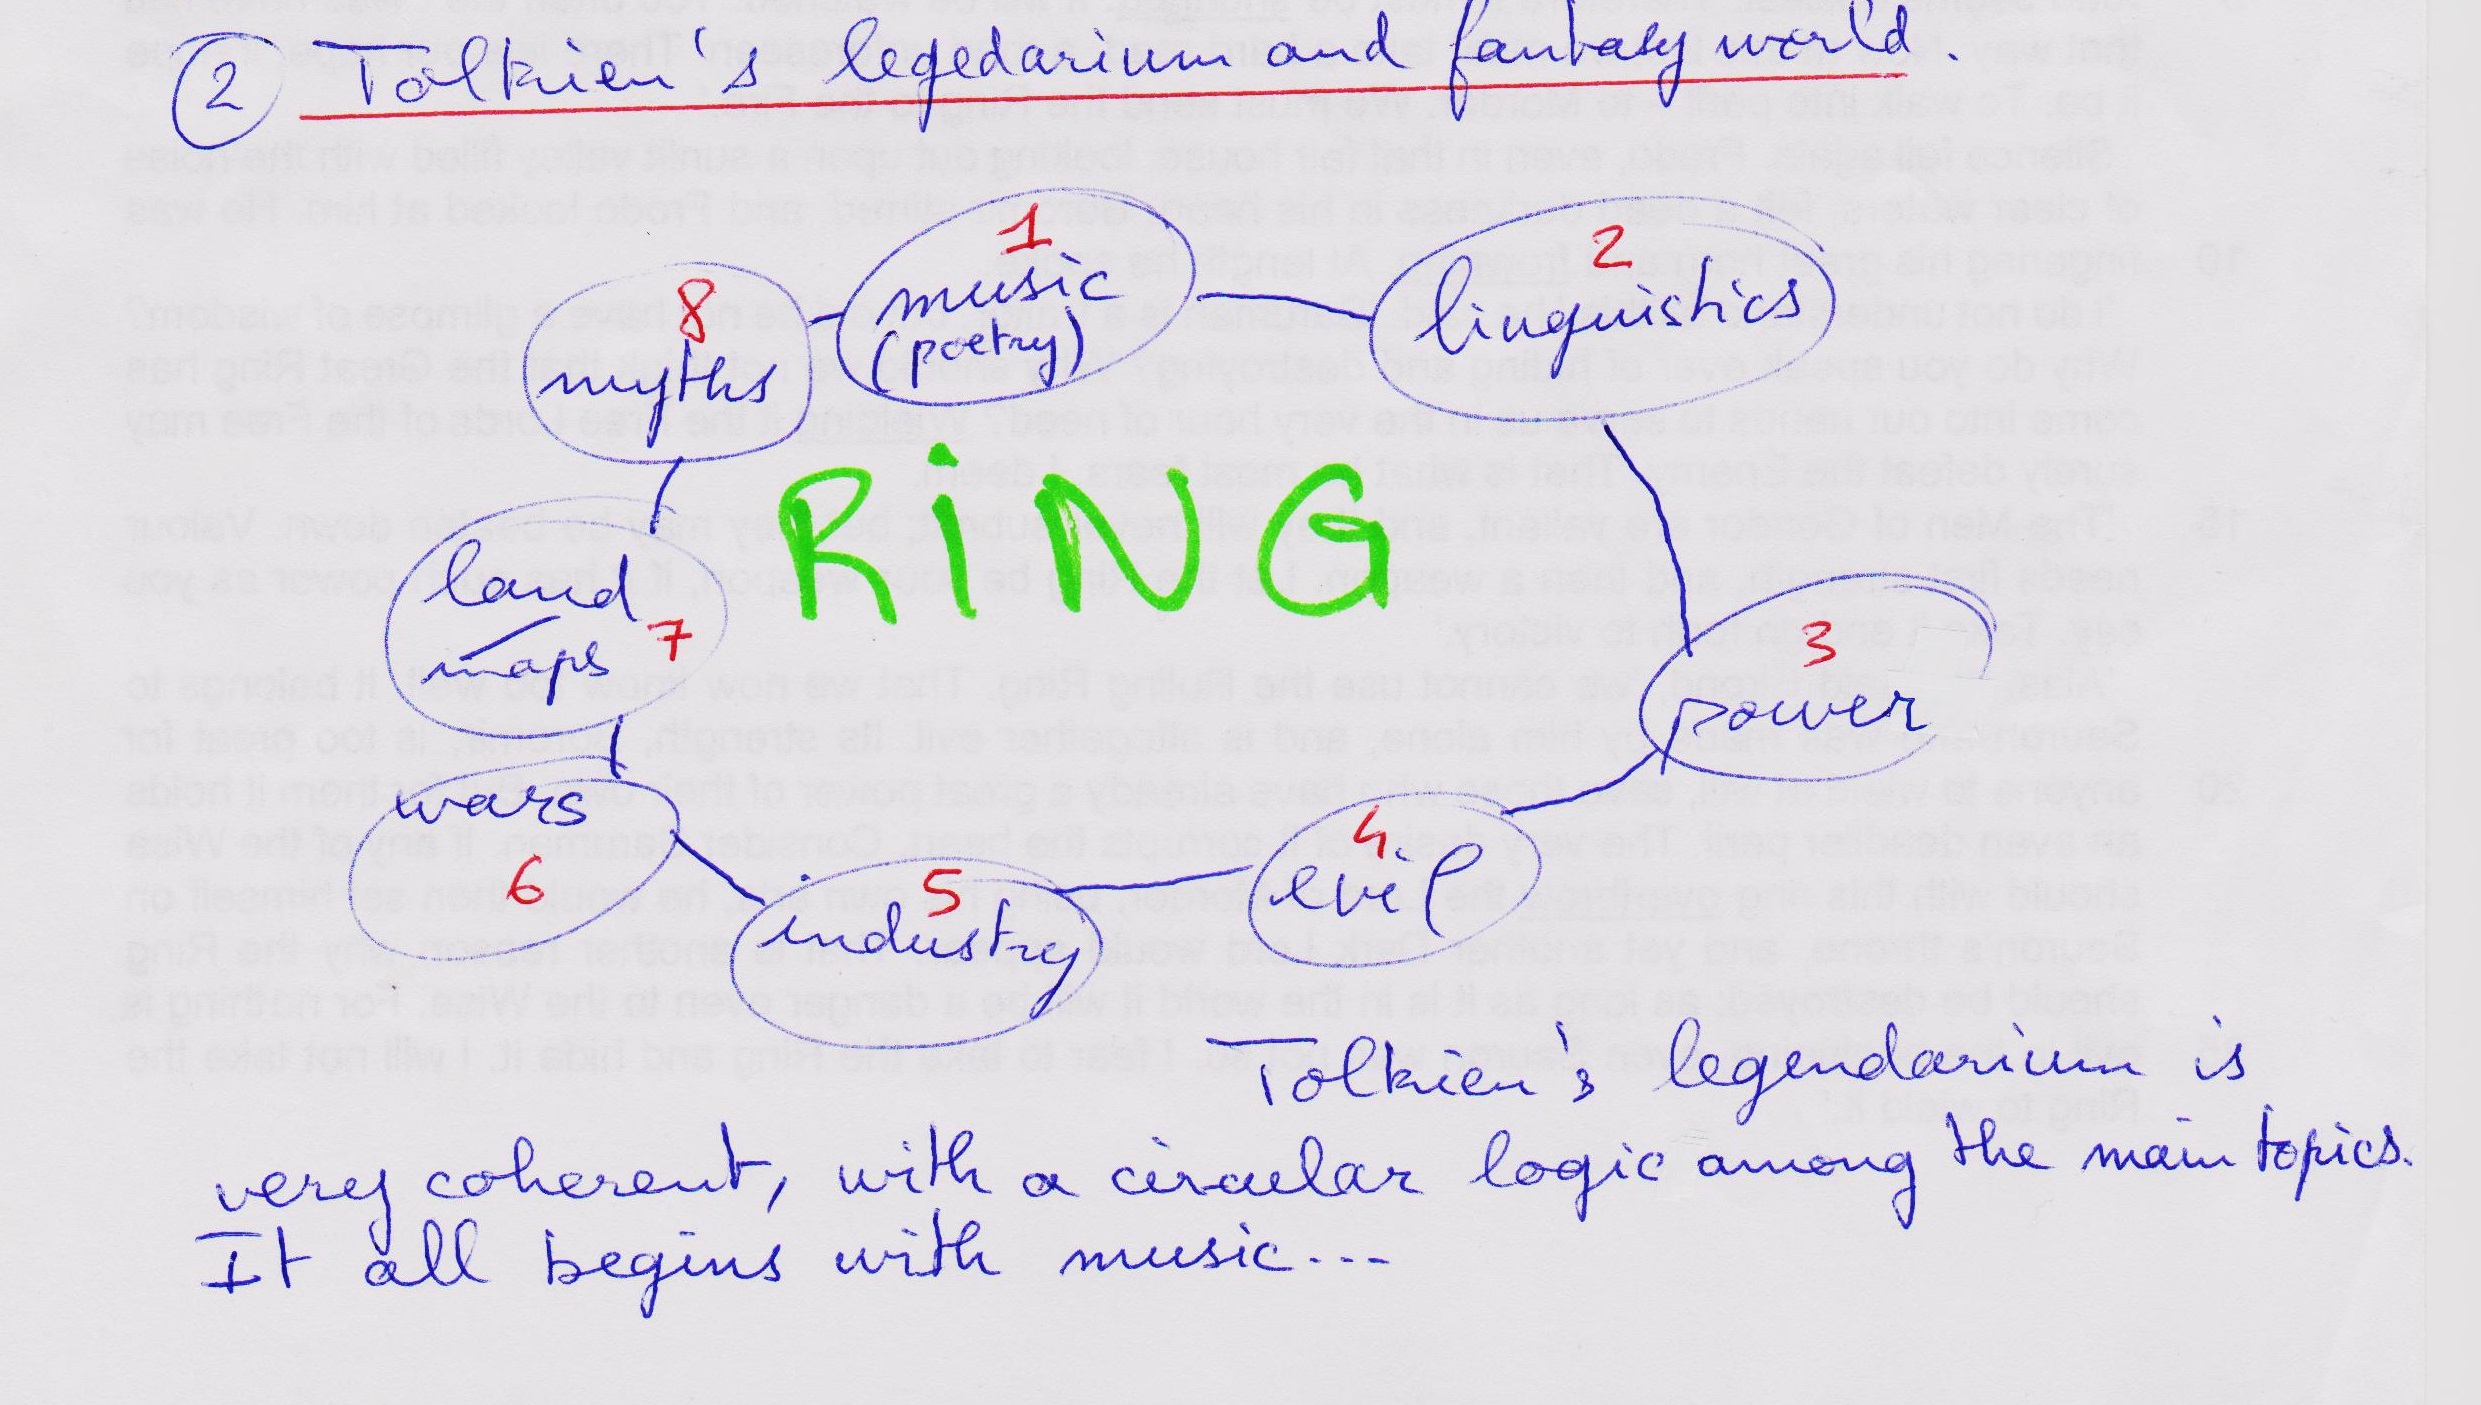 2 Tolkien's legedarium and fantasy world.
1
music
(poetry)
2
linguistics
8
myths
RiNG
land
maps 7
3
power
wars
6
4
evil
5
industry
Tolkien's legendarium is
very coherent, with a circular logic among the main topics.
It all begins with music...